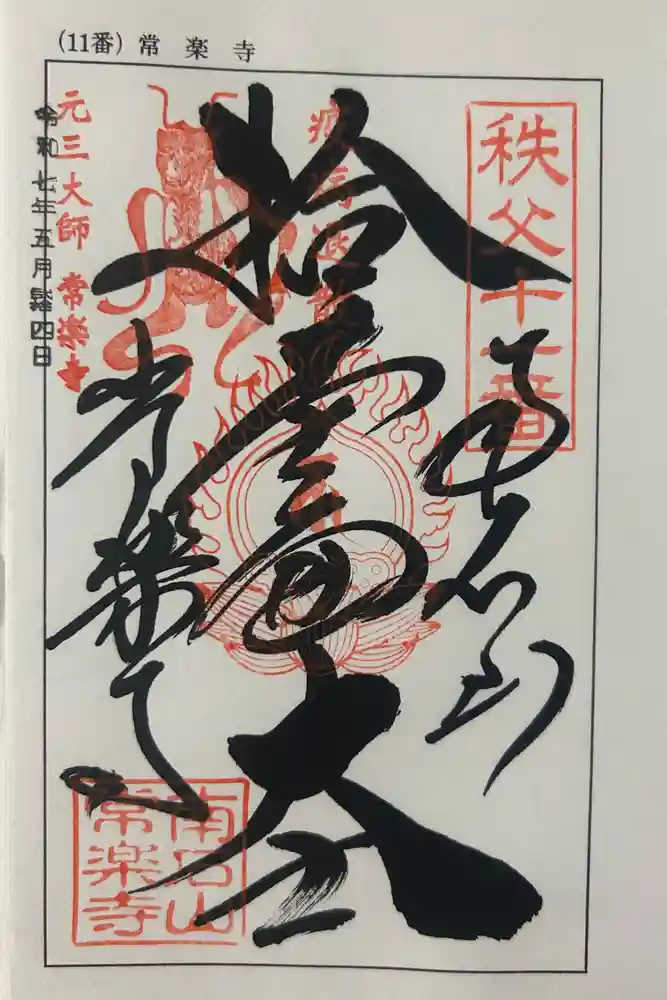 (11番) 常 楽 寺
秩父十一番
疫病退散
拾壹面大士
常楽寺
元三大師 常楽寺
令和七年五月四日
南石山
常楽寺